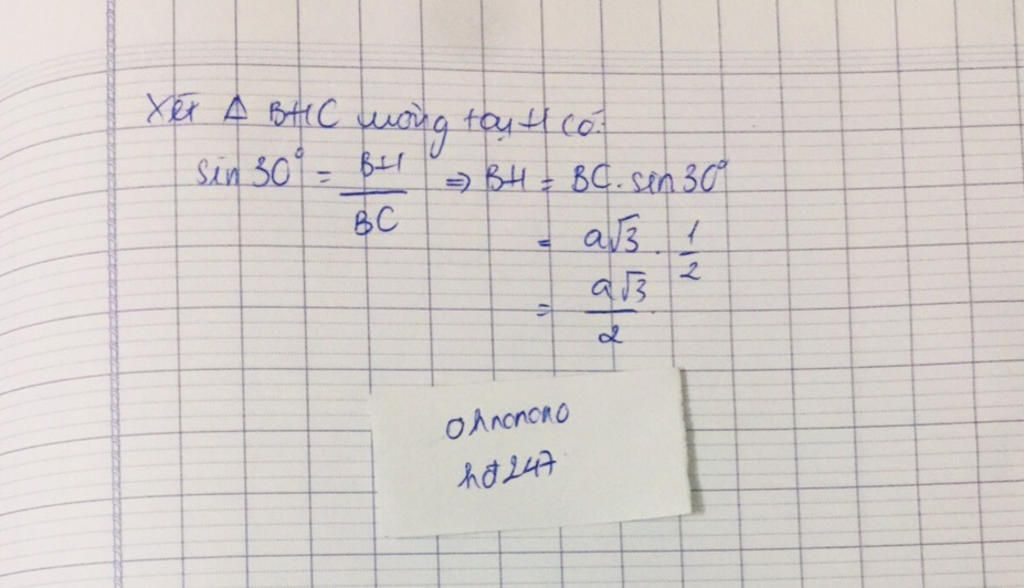 Xét Δ BHC vuông tại H có:
sin 30° = BH/BC ⇒ BH = BC. sin 30°
= a√3 . 1/2
= a√3/2.
ohnonono
hđ247